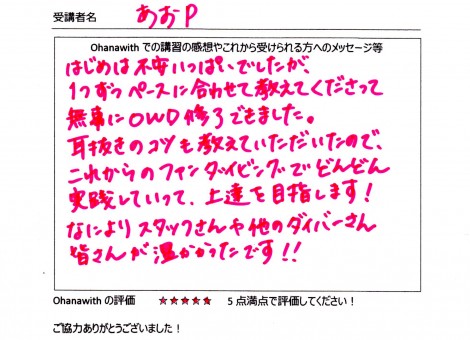 受講者名 あおP
Ohanawith での講習の感想やこれから受けられる方へのメッセージ等
はじめは不安いっぱいでしたが、
1つずつペースに合わせて教えてくださって
無事にOWD修了できました。
耳抜きのコツも教えていただいたので、
これからのファンダイビングでどんどん
実践していって、上達を目指します!
なによりスタッフさんや他のダイバーさん
皆さんが温かかったです!!
Ohanawith の評価 ★★★★★ 5点満点で評価してください！
ご協力ありがとうございました！